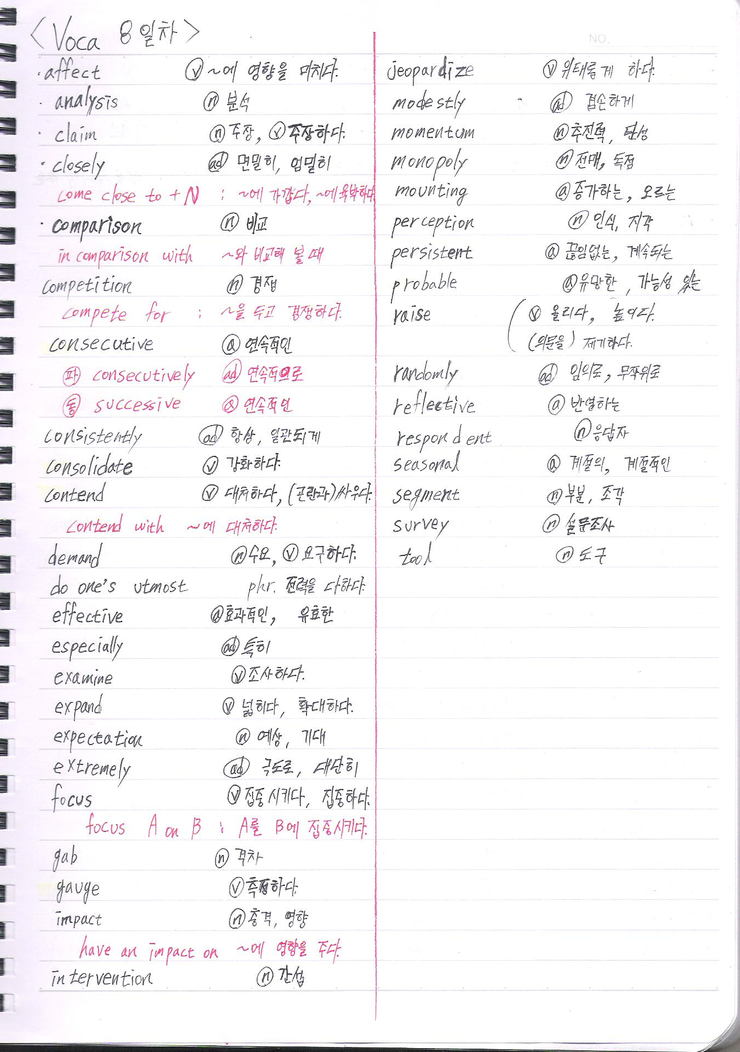 <Voca 8일차>
· affect ⓥ ~에 영향을 미치다.
· analysis ⓝ 분석
· claim ⓝ 주장, ⓥ 주장하다.
· closely ad 면밀히, 엄밀히
come close to + N : ~에 가깝다, ~에 육박하다
· comparison ⓝ 비교
in comparison with ~와 비교해 볼 때
competition ⓝ 경쟁
compete for : ~을 두고 경쟁하다.
consecutive ⓐ 연속적인
파 consecutively ad 연속적으로
동 successive ⓐ 연속적인
consistently ad 항상, 일관되게
consolidate ⓥ 강화하다.
contend ⓥ 대처하다, (곤란과)싸우다.
contend with ~에 대처하다.
demand ⓝ수요, ⓥ요구하다.
do one's utmost phr. 전력을 다하다.
effective ⓐ효과적인, 유효한
especially ad 특히
examine ⓥ조사하다.
expand ⓥ 넓히다, 확대하다.
expectation ⓝ 예상, 기대
extremely ad 극도로, 대단히
focus ⓥ집중시키다, 집중하다.
focus A on B : A를 B에 집중시키다.
gab ⓝ 격차
gauge ⓥ측정하다.
impact ⓝ충격, 영향
have an impact on ~에 영향을 주다.
intervention ⓝ 간섭
NO.
jeopardize ⓥ 위태롭게 하다.
modestly ad 겸손하게
momentum ⓝ추진력, 탄성
monopoly ⓝ전매, 독점
mounting ⓐ증가하는, 오르는
perception ⓝ 인식, 지각
persistent ⓐ 끊임없는, 계속되는
probable ⓐ유망한, 가능성 있는
raise ⓥ 올리다, 높이다.
(의문을) 제기하다.
randomly ad 임의로, 무작위로
reflective ⓐ 반영하는
respondent ⓝ응답자
seasonal ⓐ 계절의, 계절적인
segment ⓝ부분, 조각
survey ⓝ 설문조사
tool ⓝ 도구